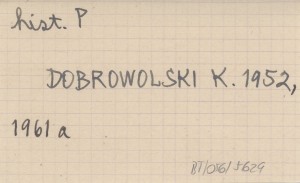 hist. P
DOBROWOLSKI K. 1952,
1961 a
BT/016/5629